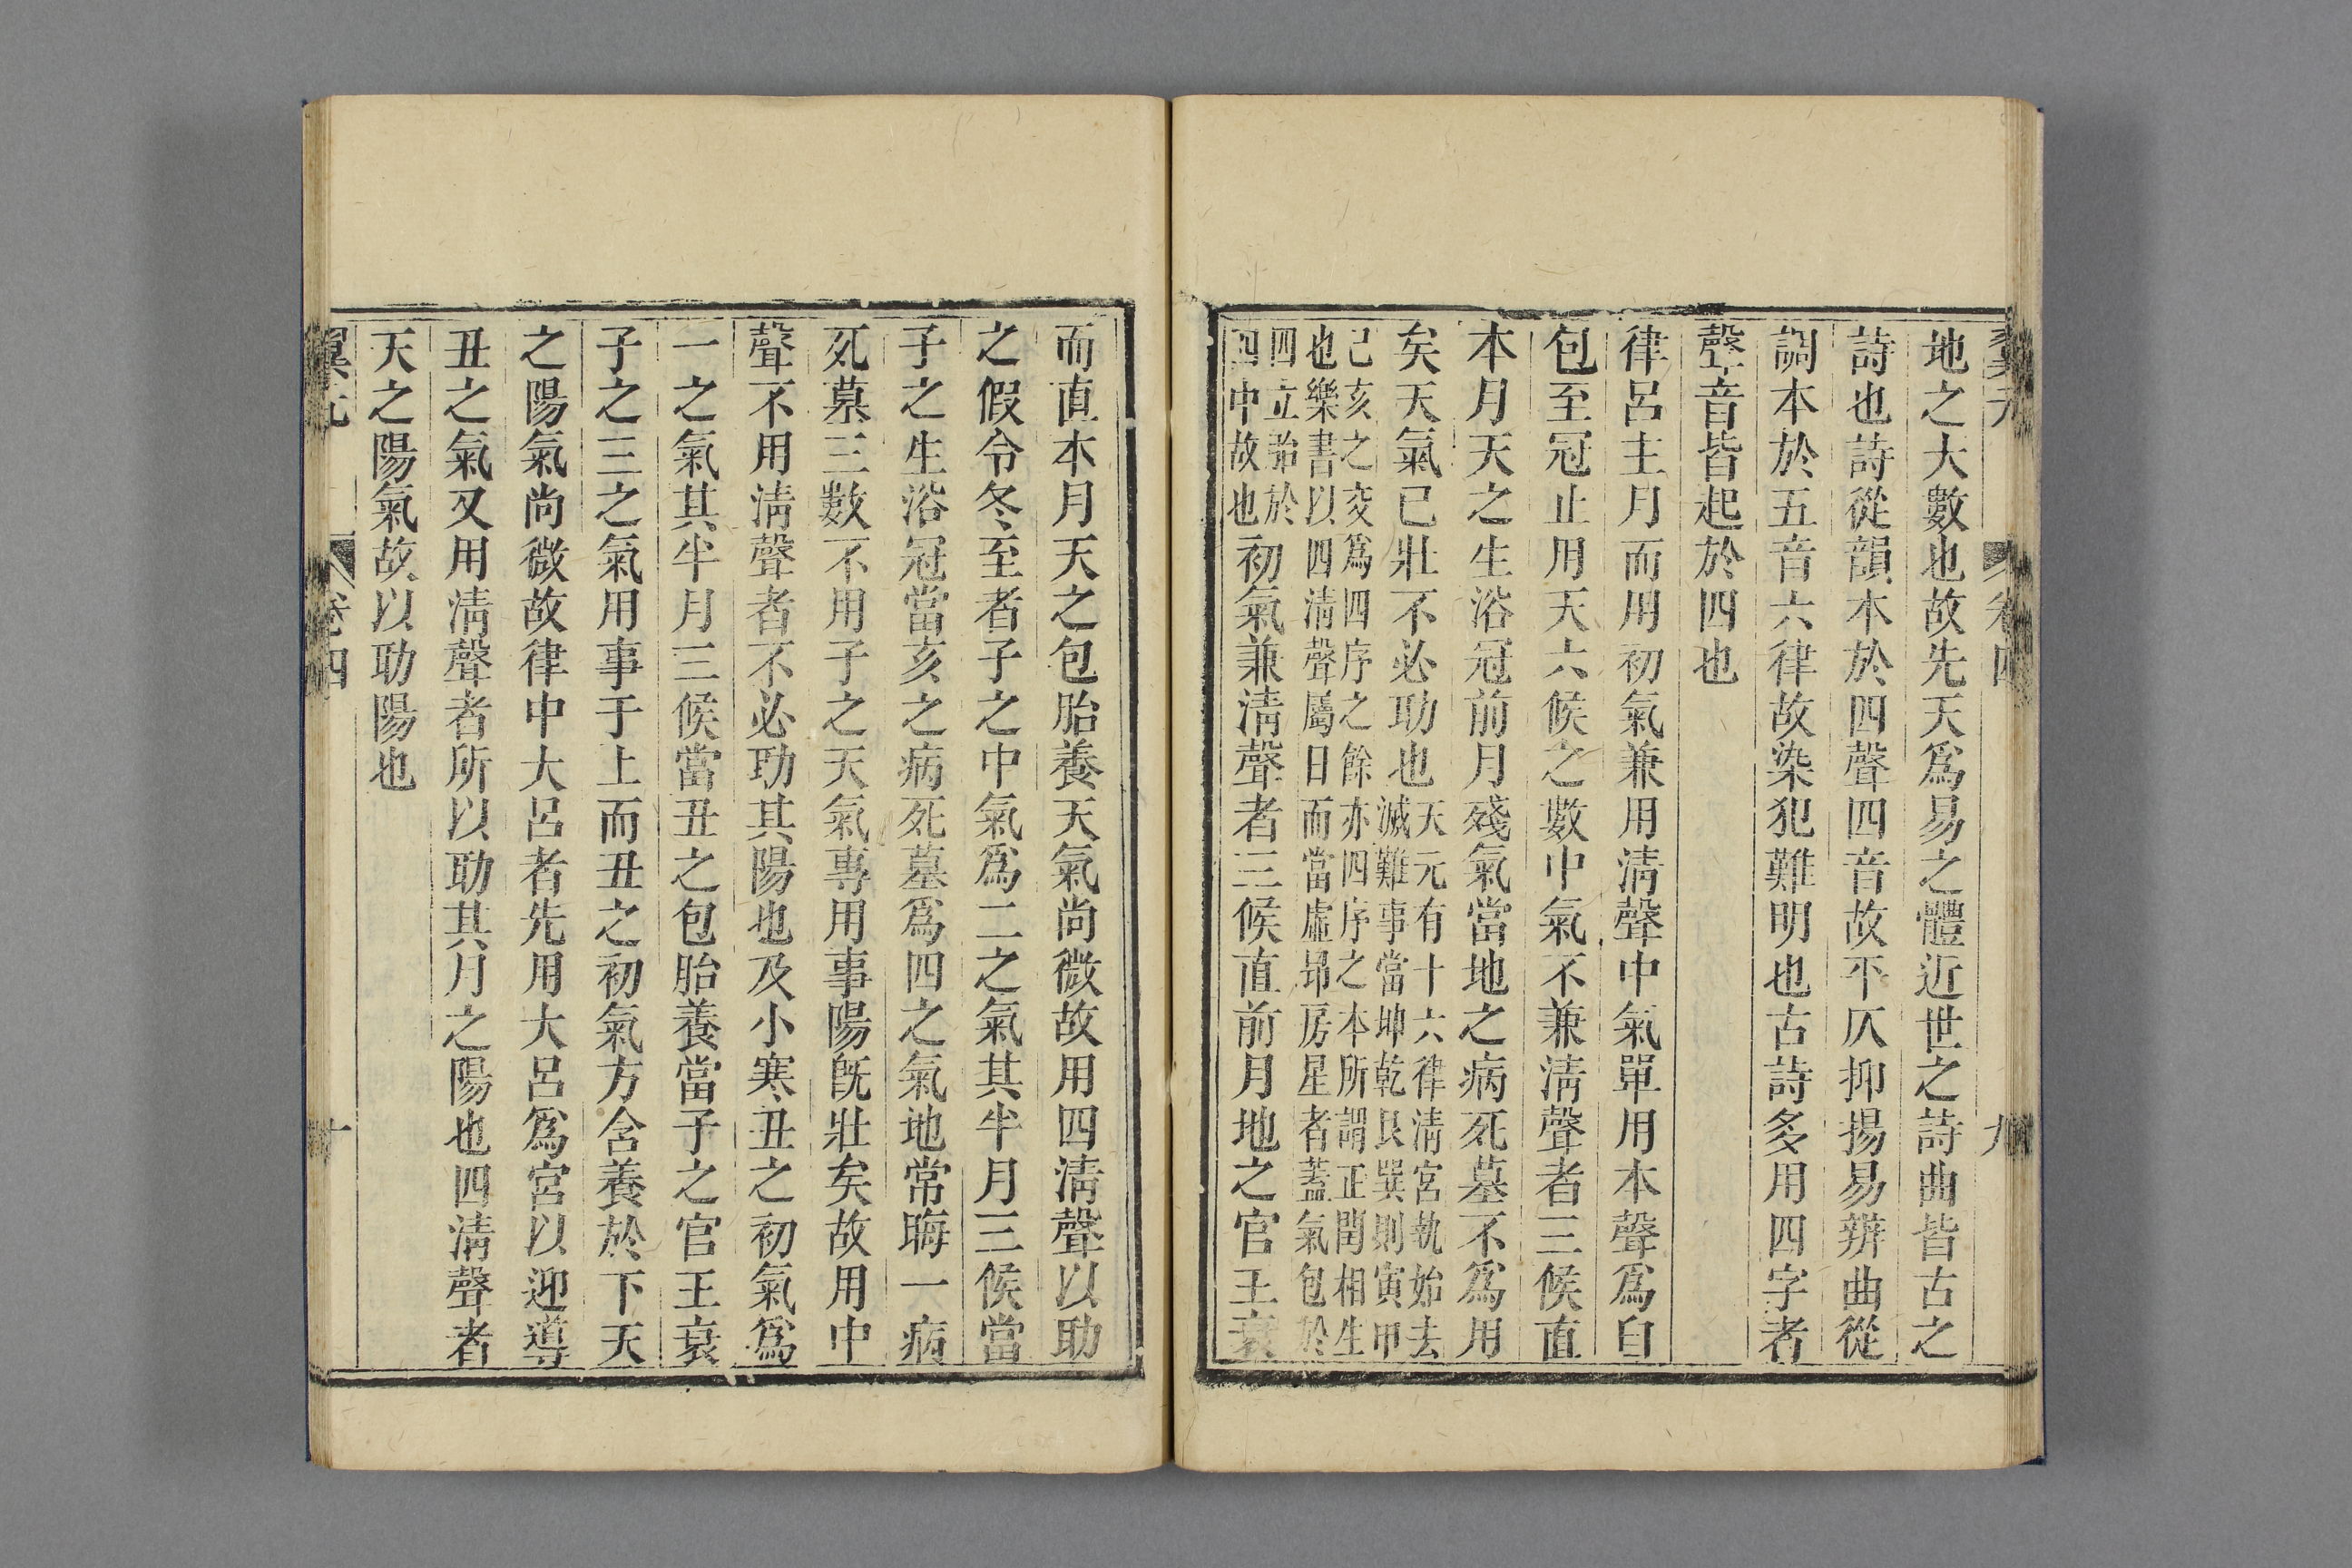 翼元
卷四
九
地之大數也故先天爲易之體近世之詩曲皆古之
詩也詩從韻本於四聲四音故平仄抑揚易辨曲從
調本於五音六律故染犯難明也古詩多用四字者
聲音皆起於四也
律呂主月而用初氣兼用淸聲中氣單用本聲爲自
包至冠止用天六候之數中氣不兼淸聲者三候直
本月天之生浴冠前月殘氣當地之病死墓不爲用
矣天氣已壯不必助也天元有十六律淸宮執始去
滅難事當坤乾艮巽則寅申
己亥之交爲四序之餘亦四序之本所謂正閏相生
也樂書以四淸聲屬日而當虛昴房星者蓋氣包於
四立始於
四中故也初氣兼淸聲者三候直前月地之官王衰
而直本月天之包胎養天氣尚微故用四淸聲以助
之假令冬至者子之中氣爲二之氣其半月三候當
子之生浴冠當亥之病死墓爲四之氣地常晦一病
死墓三數不用子之天氣專用事陽旣壯矣故用中
聲不用淸聲者不必助其陽也及小寒丑之初氣爲
一之氣其半月三候當丑之包胎養當子之官王衰
子之三之氣用事于上而丑之初氣方含養於下天
之陽氣尚微故律中大呂者先用大呂爲宮以迎導
丑之氣又用淸聲者所以助其月之陽也四淸聲者
天之陽氣故以助陽也
翼元
卷四
十